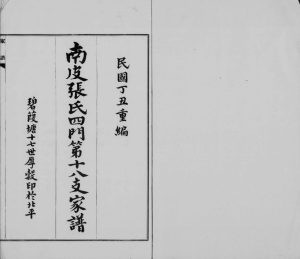 民國丁丑重編
南皮張氏四門第十八支家譜
碧葭塘十七世厚穀印於北平
家譜